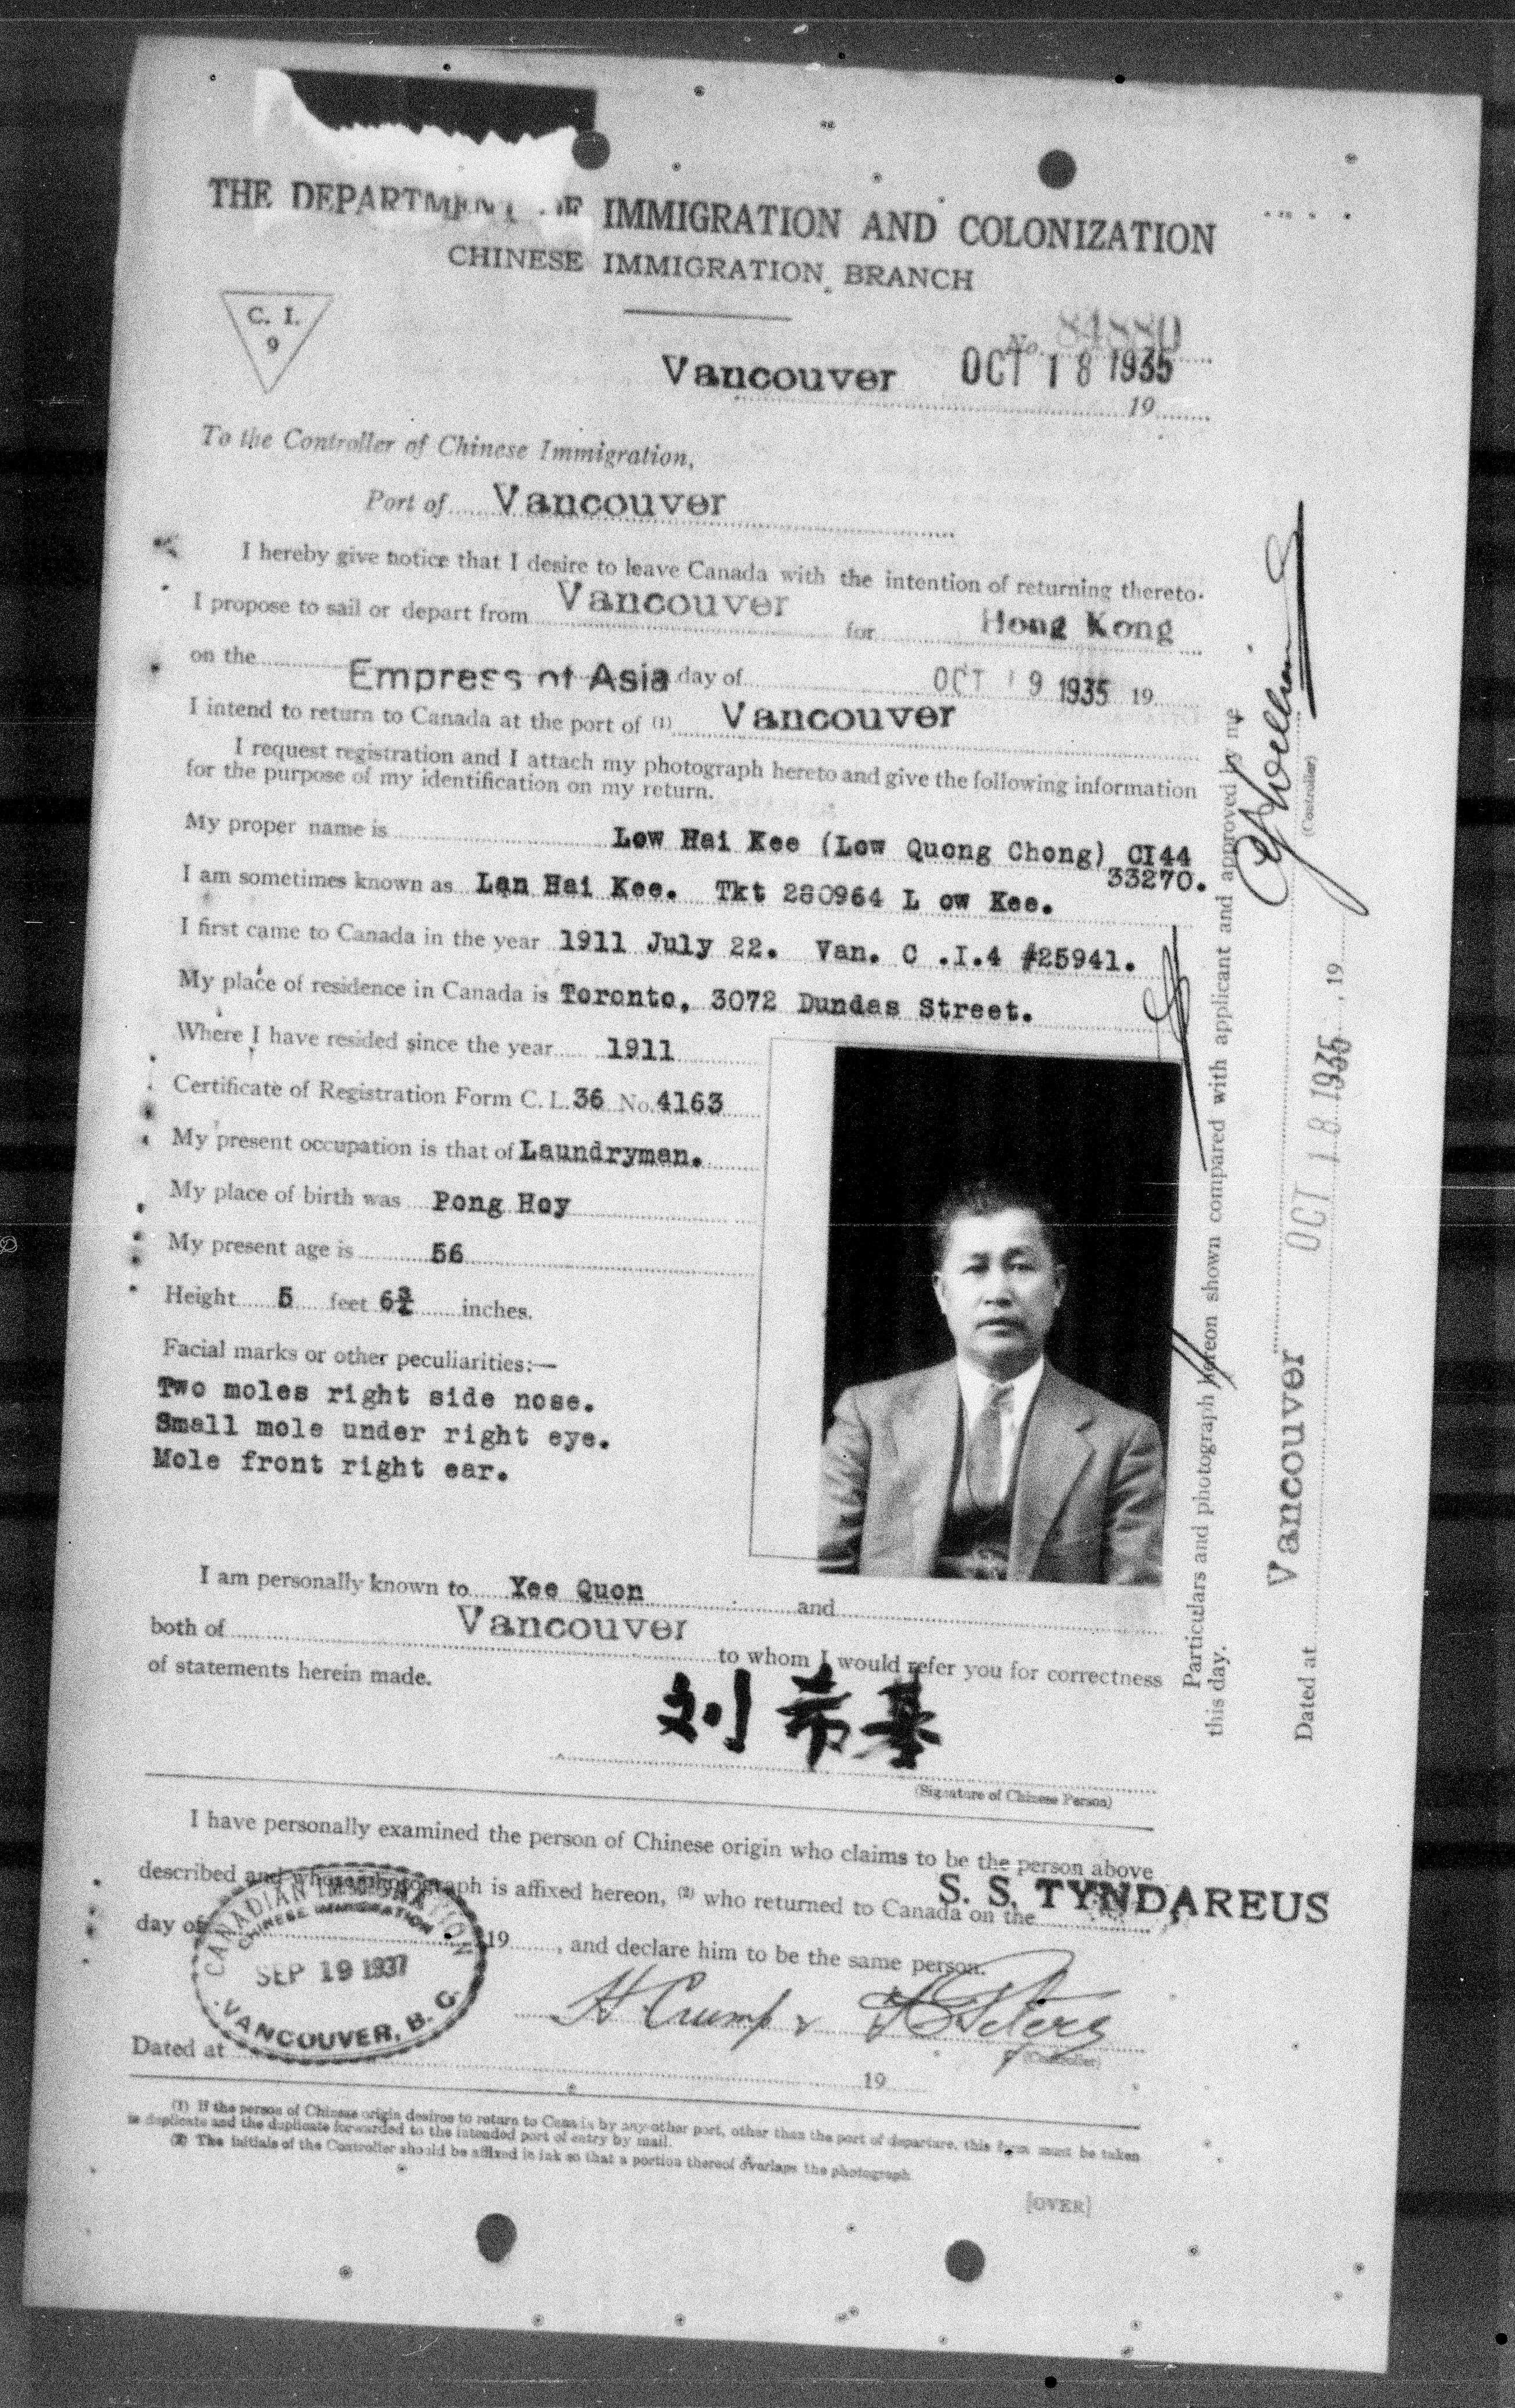 THE DEPARTMENT OF IMMIGRATION AND COLONIZATION
CHINESE IMMIGRATION BRANCH
C. I.
9
No. 84880
Vancouver OCT 18 1935
19
To the Controller of Chinese Immigration,
Port of Vancouver
I hereby give notice that I desire to leave Canada with the intention of returning thereto.
I propose to sail or depart from Vancouver for Hong Kong
on the Empress of Asia day of OCT 19 1935 19
I intend to return to Canada at the port of (1) Vancouver
I request registration and I attach my photograph hereto and give the following information
for the purpose of my identification on my return.
My proper name is Low Hai Kee (Low Quong Chong) CI44
33270.
I am sometimes known as Lan Hai Kee. Tkt 280964 L ow Kee.
I first came to Canada in the year 1911 July 22. Van. C .I.4 #25941.
My place of residence in Canada is Toronto, 3072 Dundas Street.
Where I have resided since the year 1911
Certificate of Registration Form C. I. 36 No. 4163
My present occupation is that of Laundryman.
My place of birth was Pong Hoy
My present age is 56
Height 5 feet 6¾ inches.
Facial marks or other peculiarities:—
Two moles right side nose.
Small mole under right eye.
Mole front right ear.
I am personally known to Yee Quon and
both of Vancouver to whom I would refer you for correctness
of statements herein made.
刘希基
(Signature of Chinese Person)
I have personally examined the person of Chinese origin who claims to be the person above
described and whose photograph is affixed hereon, (2) who returned to Canada on the S. S. TYNDAREUS
day of 19 , and declare him to be the same person.
CANADIAN IMMIGRATION
CHINESE IMMIGRATION
SEP 19 1937
VANCOUVER, B. C.
H Crump
Peters
(Controller)
Dated at 19
(1) If the person of Chinese origin desires to return to Canada by any other port, other than the port of departure, this form must be taken
in duplicate and the duplicate forwarded to the intended port of entry by mail.
(2) The initials of the Controller should be affixed in ink so that a portion thereof overlaps the photograph
[OVER]
Particulars and photograph hereon shown compared with applicant and approved by me
this day.
Dated at Vancouver OCT 18 1935 , 19
(Controller)